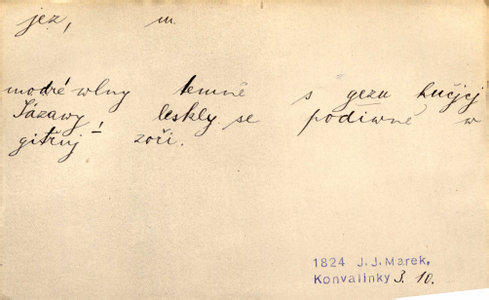 jez, m
modré wlny temně s gezu hučjcj
Sázawy, leskly se podiwně w
gitřnj zoři.
1824 J. J. Marek,
Konvalinky 3. 10.